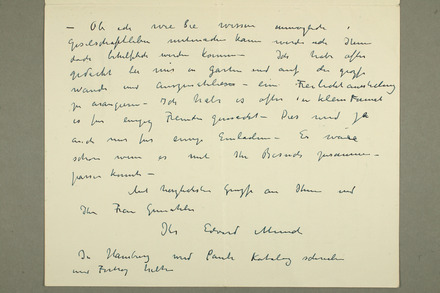 – Ob ich wie Sie wissen unmöglich
Gesellschaftleben mitmachen kann werde ich Ihnen
doch behilflich werden können – Ich habe öfter
gedacht bei mir im Garten und auf der große
Wande und Ausgeschlossen – ein Freilichtausstellung
zu arangern – Ich habe es öfter in klein Format
es für einige Fremden gemacht – Dies wird ja
auch nur für einige Einladen – Es wäre
schön wenn es mit Ihr Besuch zusammen-
passen könnte –
Mit herzlichsten Grüsse an Ihnen und
Ihr Frau Gemahlin
Ihr Edvard Munch
In Hamburg wird Pauli Katalog schreiben
und Vortrag halten